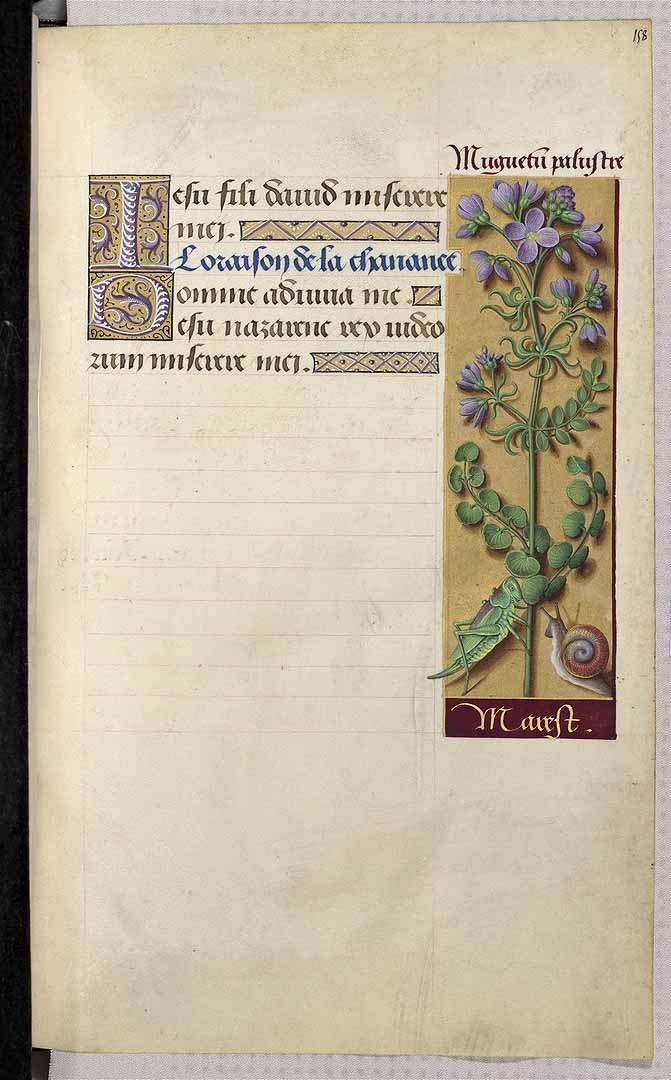 158
Muguetū palustre
Iesu fili dauid miserere
mei.
Loraison de la chananee.
Domine adiuua me.
Iesu nazarene rex iudeo
rum miserere mei.
Marest.